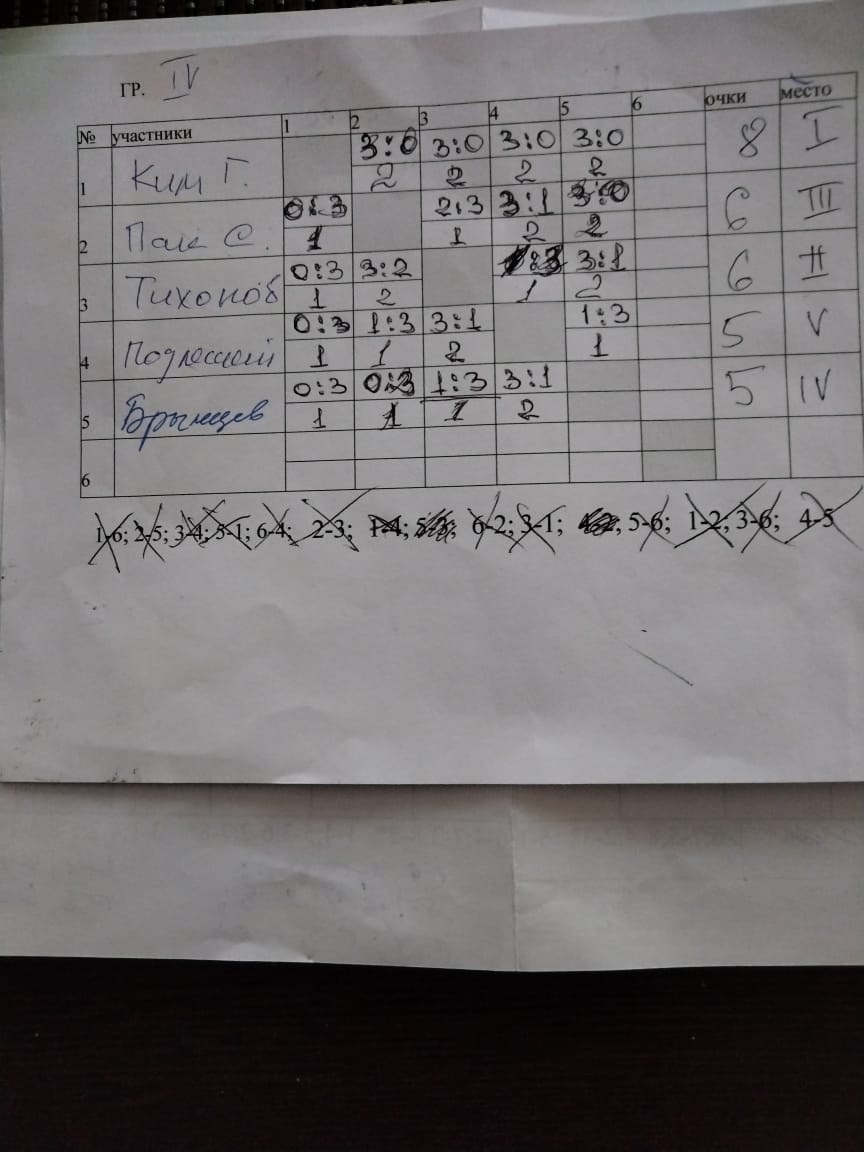 ГР. IV
№ участники 1 2 3 4 5 6 очки место
1 Ким Г. 3:0 3:0 3:0 3:0 8 I
2 2 2 2
2 Пак С. 0:3 2:3 3:1 3:0 6 III
1 1 2 2
3 Тихонов 0:3 3:2 1:3 3:1 6 II
1 2 1 2
4 0:3 1:3 3:1 1:3 5 V
1 1 2 1
5 Брынцев 0:3 0:3 1:3 3:1 5 IV
1 1 1 2
6
1-6; 2-5; 3-4; 5-1; 6-4; 2-3; 1-4; 5-3; 6-2; 3-1; 5-6; 1-2; 3-6; 4-5